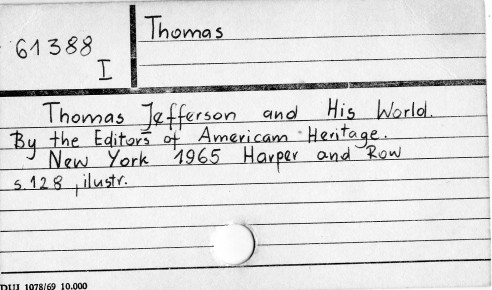 61388
I
Thomas
Thomas Jefferson and His World.
By the Editors of American Heritage.
New York 1965 Harper and Row
s.128, ilustr.
DUJ 1078/69 10.000